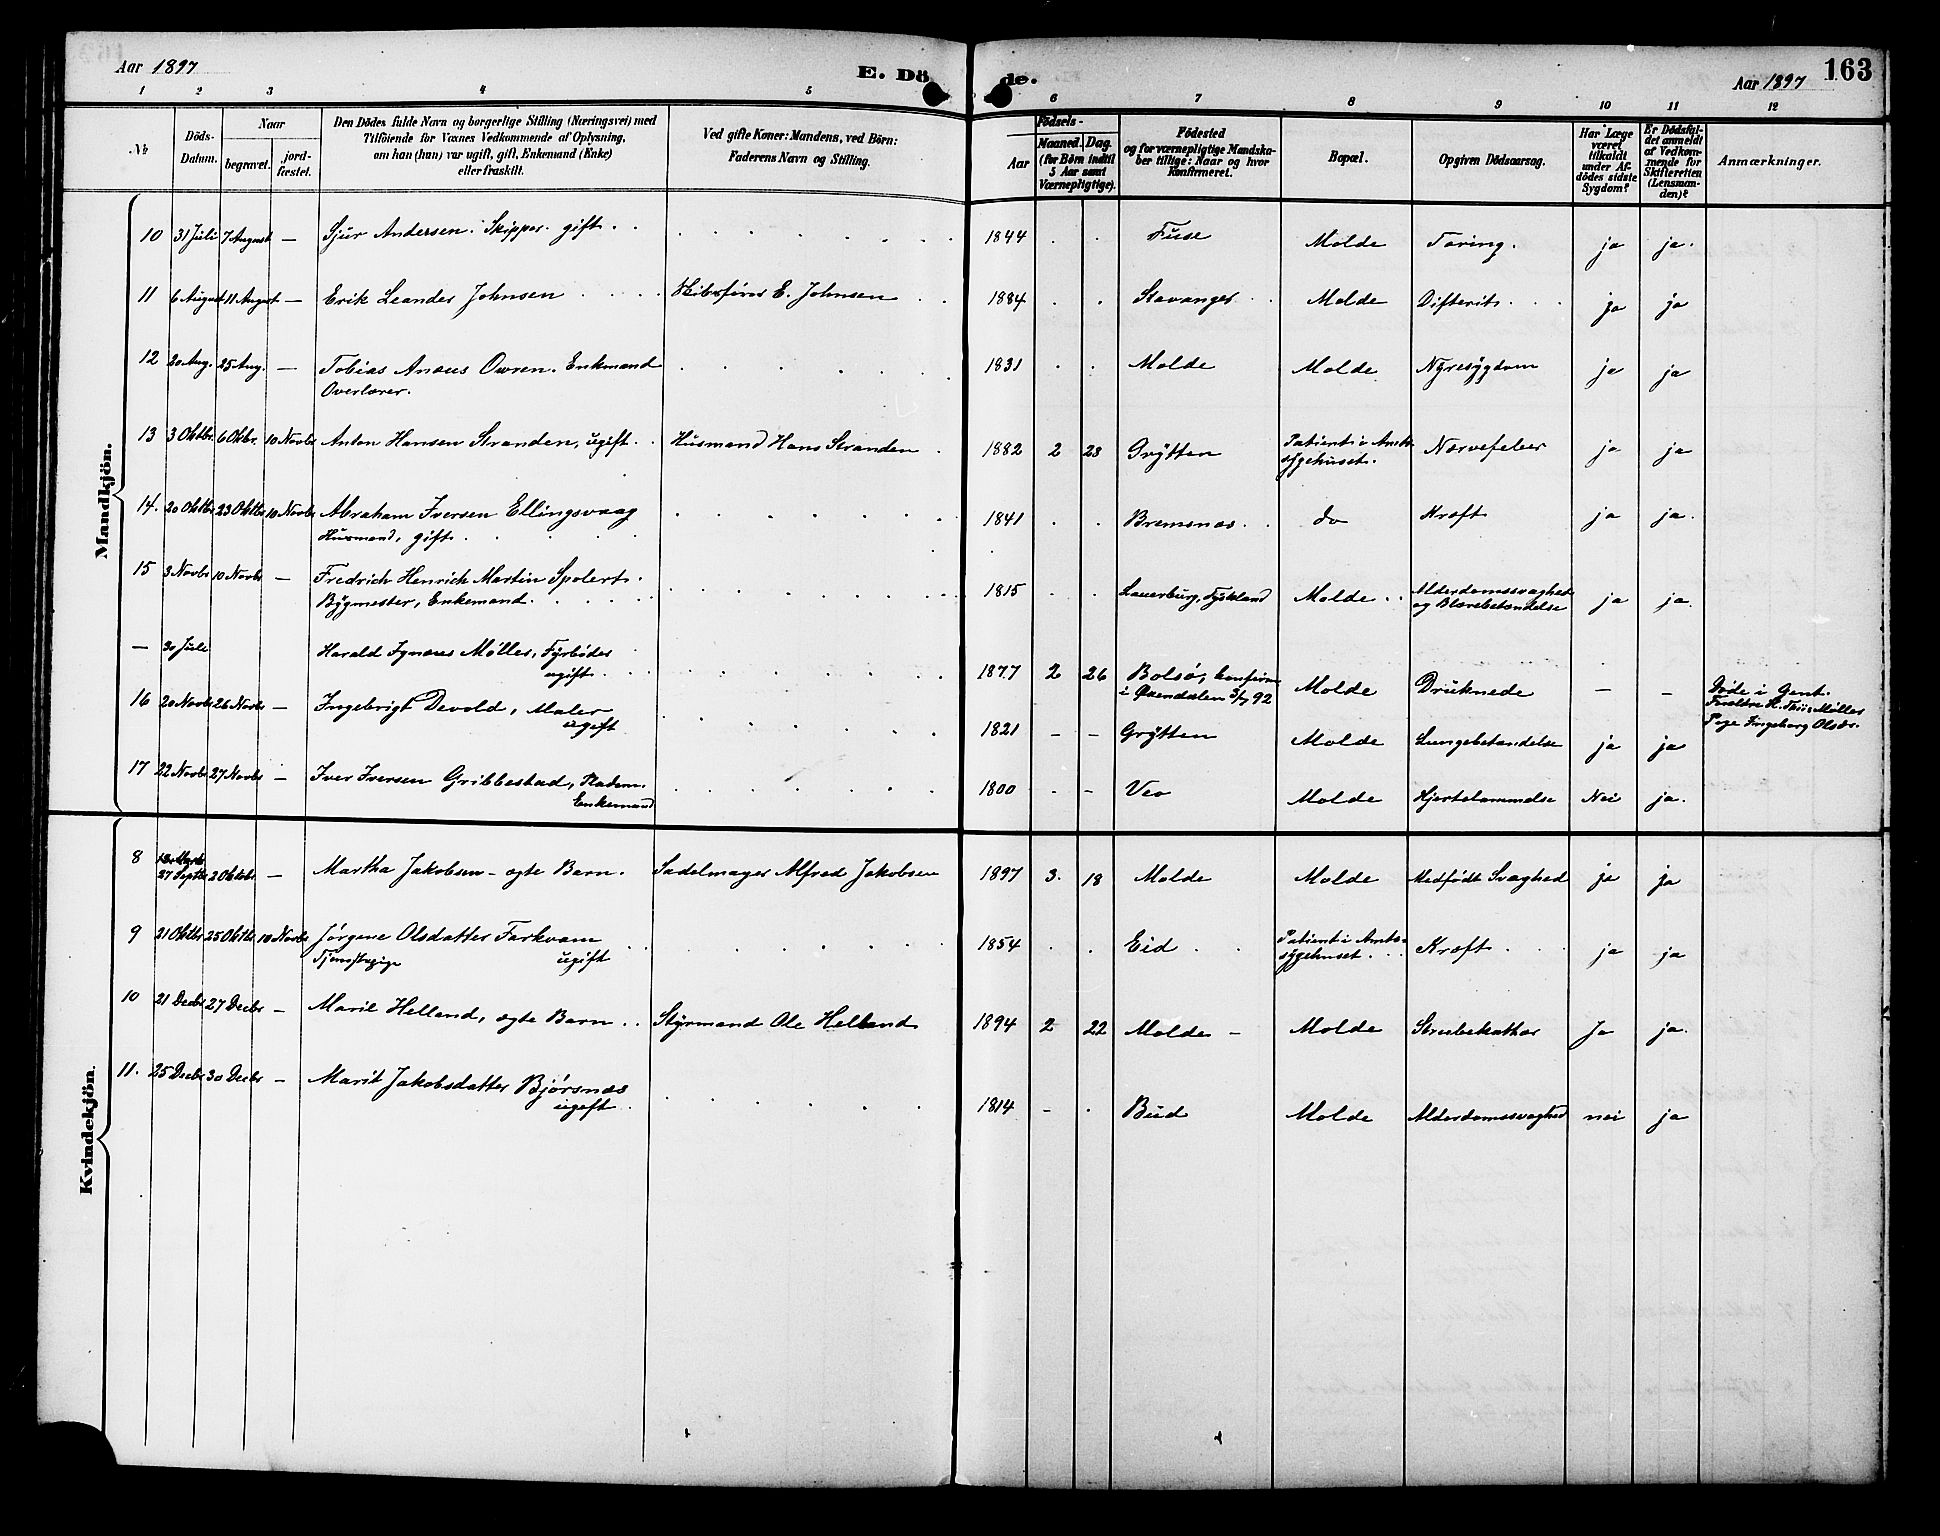 Aar 1897
E. Dö de.
Aar 1897
163
1 2 3 4 5 6 7 8 9 10 11 12
No.
Döds-Datum.
Naar
begravet.
jord-fæstet.
Den Dödes fulde Navn og borgerlige Stilling (Næringsvei) med
Tilföiende for Voxnes Vedkommende af Oplysning,
om han (hun) var ugift, gift, Enkemand (Enke)
eller fraskilt.
Ved gifte Koner: Mandens, ved Börn:
Faderens Navn og Stilling.
Födsels-
Aar
Maaned. Dag.
(for Börn indtil
5 Aar samt
Værnepligtige).
Födested
og for værnepligtige Mandska-
ber tillige: Naar og hvor
Konfirmeret.
Bopæl.
Opgiven Dödsaarsag.
Har Læge
været
tilkaldt
under Af-
dödes sidste
Sygdom?
Er Dödsfal-
det anmeldt
af Vedkom-
mende for
Skifteretten
(Lensman-
den)?
Anmærkninger.
Mandkjön.
10 31 Juli 7 August — Sjur Andersen. Skipper. gift. 1844 Fuse Molde Tæring. ja ja.
11 6 August 11 August — Erik Leander Johnsen Skibsfører E. Johnsen 1884 Stavanger Molde Difterit ja ja
12 20 Aug. 25 Aug. — Tobias Anæus Owren. Enkmand 1831 Molde Molde Nyresygdom ja ja
Overlærer.
13 3 Oktbr. 6 Oktbr. 10 Novbr Anton Hansen Stranden, ugift. Husmand Hans Stranden 1882 2 23 Grytten Patient i Amts- Nervefeber ja ja
sygehuset.
14. 20 Oktbr 23 Oktbr 10 Novbr Abraham Iversen Ellingsvaag 1841 Bremsnæs do Kræft ja ja.
Husmand, gift.
15 3 Novbr 10 Novbr — Fredrich Henrich Martin Spolert. 1815 Lauerburg, Tyskland Molde Alderdomssvaghed ja ja.
Bygmester, Enkemand. og Blærebetændelse
— 30 Juli Harald Ignæus Møller, Fyrbøder 1877 2 26 Bolsø, konfirm. Molde Druknede — — Døde i Gent.
ugift. i Øxendalen 3/7 92
16 20 Novbr 26 Novbr — Ingebrigt Devold, Maler 1821 – – Grytten Molde Lungebetændelse ja ja
ugift
17 22 Novbr 27 Novbr — Iver Iversen Gribbestad, 1800 – – Veø Molde Hjertelammelse Nei ja.
Enkemand
Kvindekjön.
8 27 Septbr 2 Oktobr — Martha Jakobsen – ægte Barn. Sadelmager Alfred Jakobsen 1897 3. 18 Molde Molde Medfødt Svaghed ja ja
9 21 Oktbr 25 Oktbr 10 Novbr Jørgene Olsdatter Farkvam 1854 Eid Patient i Amts- Kræft ja ja
Tjenestepige ugift sygehuset
10 21 Decbr 27 Decbr — Marie Helland, ægte Barn Styrmand Ole Helland 1894 2 22 Molde – Molde Strubekathar Ja ja.
11. 25 Decbr 30 Decbr — Marit Jakobsdatter Bjørsnæs 1814 – Bud Molde Alderdomssvaghed nei ja
ugift.